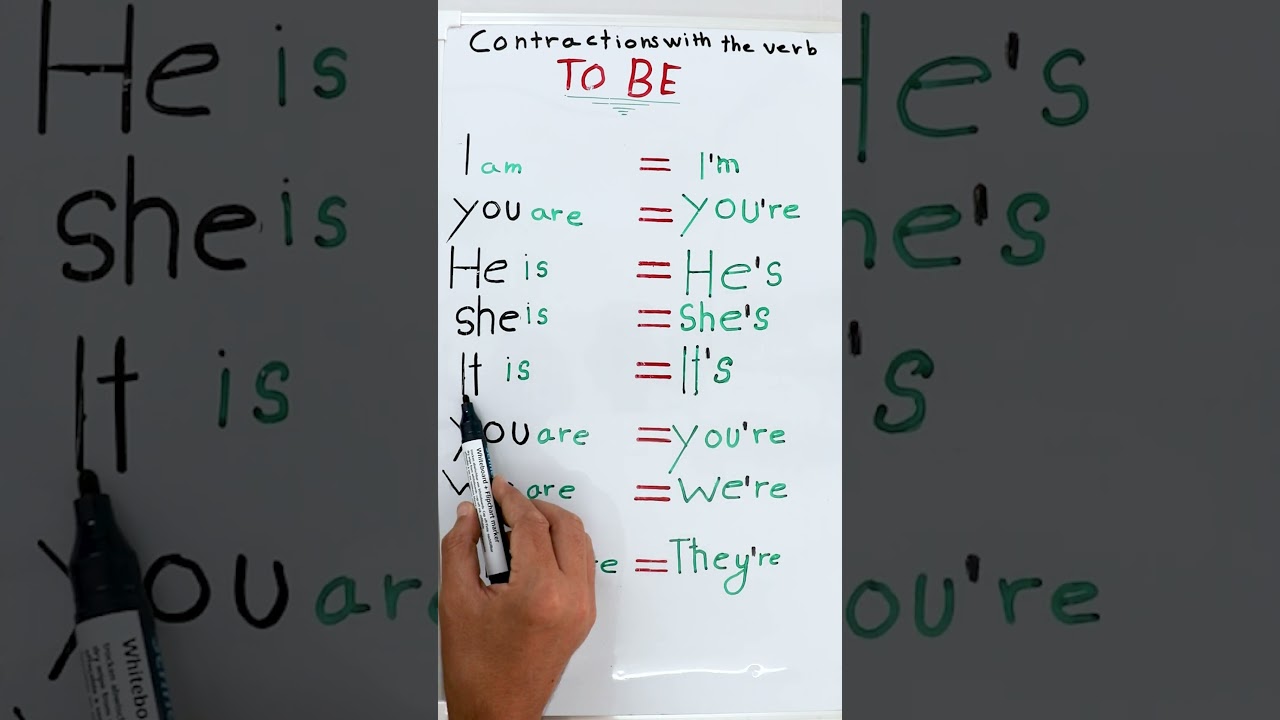 Contractions with the verb
TO BE
I am = I'm
you are = you're
He is = He's
she is = she's
It is = It's
you are = you're
are = we're
= They're
Whiteboard + Flipchart marker